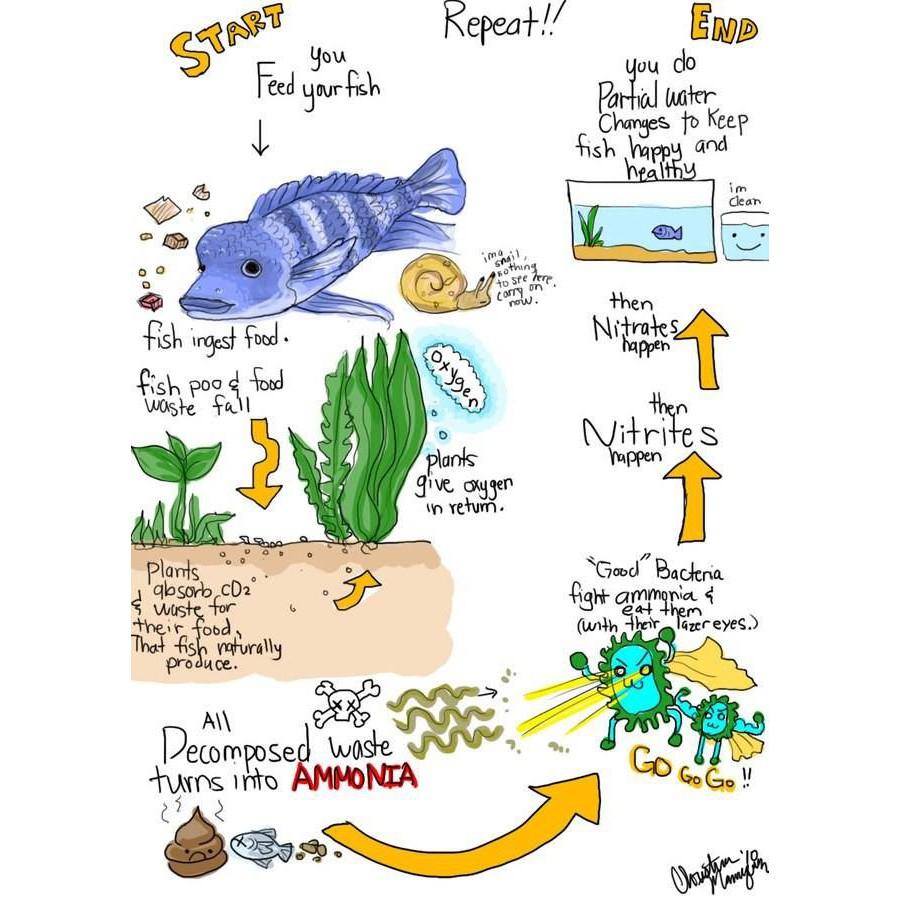 START
Repeat!!
END
you
Feed your fish
you do
Partial water
Changes to keep
fish happy and
healthy
im
clean
im a
snail,
nothing
to see here.
carry on
now.
fish ingest food.
fish poo & food
waste fall
oxygen
plants
give oxygen
in return.
Plants
absorb CO2
& waste for
their food.
That fish naturally
produce.
All
Decomposed waste
turns into AMMONIA
"Good" Bacteria
fight ammonia &
eat them
(with their lazer eyes.)
GO GO GO !!
then
Nitrites
happen
then
Nitrates
happen